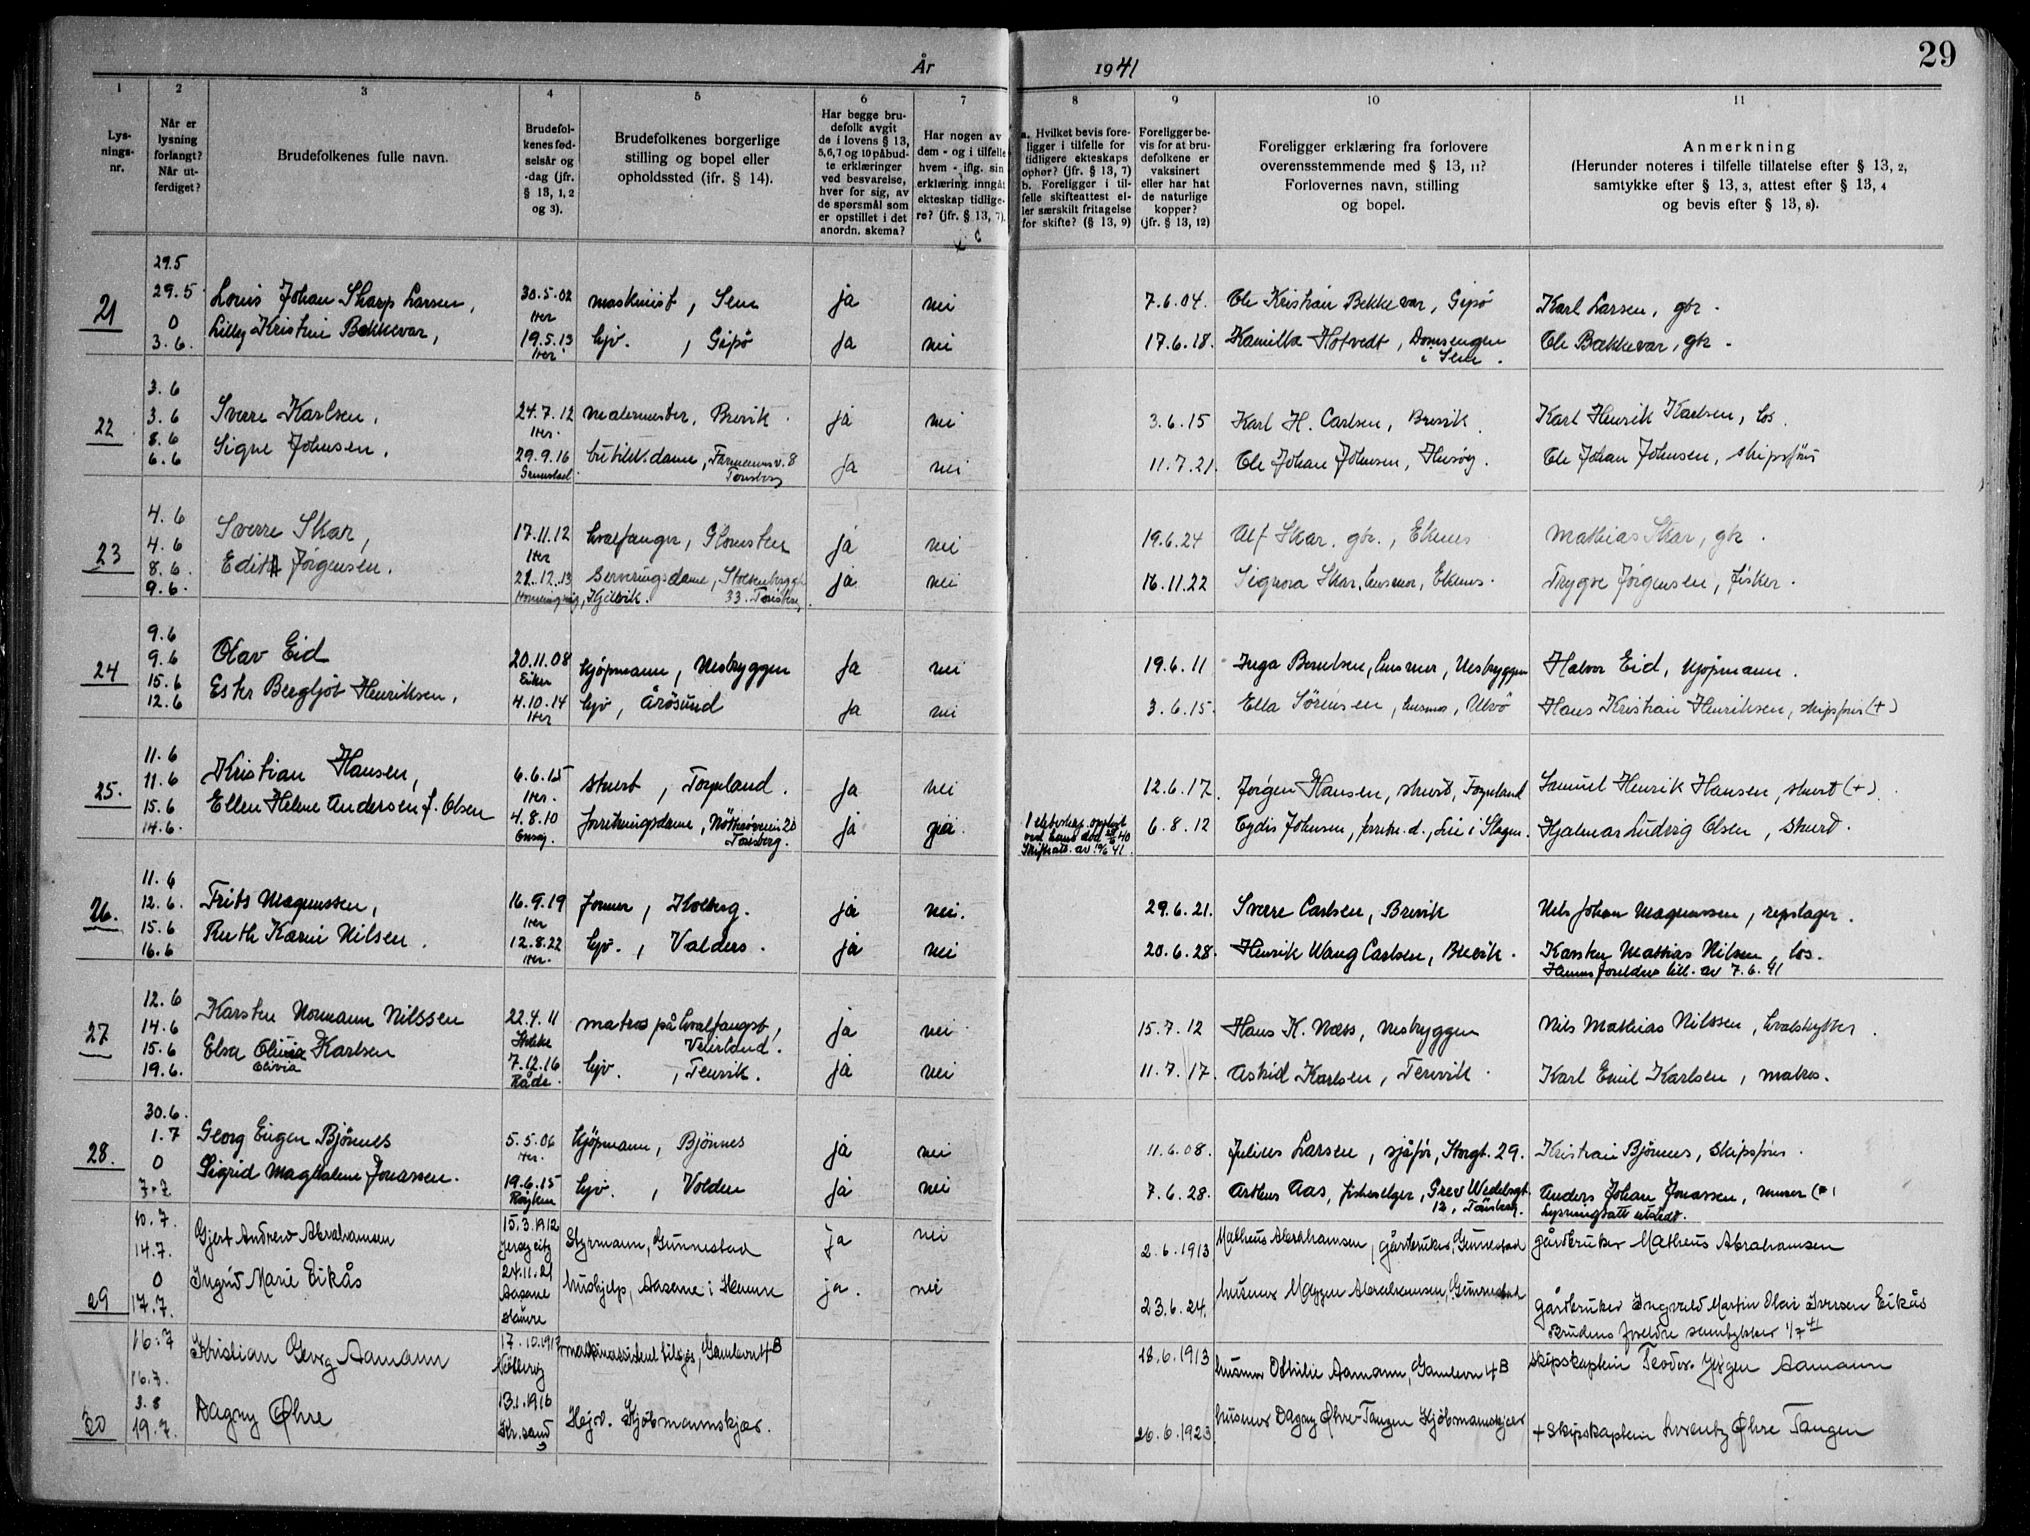 År 1941
29
1
2
3
4
5
6
7
8
9
10
11
Lys-
nings-
nr.
Når er
lysning
forlangt?
Når ut-
ferdiget?
Brudefolkenes fulle navn.
Brudefol-
kenes fød-
selsår og
-dag (jfr.
§ 13, 1, 2
og 3).
Brudefolkenes borgerlige
stilling og bopel eller
opholdssted (ifr. § 14).
Har begge bru-
defolk avgit
de i lovens § 13,
5,6,7 og 10 påbud-
te erklæringer
ved besvarelse,
hver for sig, av
de spørsmål som
er opstillet i det
anordn. skema?
Har nogen av
dem - og i tilfelle
hvem - iflg. sin
erklæring inngåt
ekteskap tidlige-
re? (jfr. § 13, 7).
a. Hvilket bevis fore-
ligger i tilfelle for
tidligere ekteskaps
ophør? (jfr. § 13, 7)
b. Foreligger i til-
felle skifteattest el-
ler særskilt fritagelse
for skifte? (§ 13, 9)
Foreligger be-
vis for at bru-
defolkene er
vaksinert
eller har hat
de naturlige
kopper?
(jfr. § 13, 12)
Foreligger erklæring fra forlovere
overensstemmende med § 13, 11?
Forlovernes navn, stilling
og bopel.
Anmerkning
(Herunder noteres i tilfelle tillatelse efter § 13, 2,
samtykke efter § 13, 3, attest efter § 13, 4
og bevis efter § 13, 8).
21
29.5
29.5
0
3.6.
Louis Johan Skarp Larsen, 30.5.02 maskinist, Sem ja nei 7.6.04. Ole Kristian Bekkevar, Gipø Karl Larsen, gbr.
Lilly Kristine Bekkevar, 19.5.13 hjv., Gipø ja nei 17.6.18. Kamilla Hotvedt, Domsengen Ole Bækkevar, gbr.
i Sem.
22
3.6
3.6
8.6
6.6
Sverre Karlsen, 24.7.12 malermester, Brevik ja nei 3.6.15 Karl H. Carlsen, Brevik Karl Henrik Karlsen, los.
Signe Johnsen, 29.9.16 butikk.dame, Farmannsv. 8 ja nei 11.7.21. Ole Johan Johnsen, Husøy. Ole Johan Johnsen, skipsfører
Tønsberg
23
4.6
4.6
8.6.
9.6.
Sverre Skar, 17.11.12 hvalfanger, Glomsten ja nei 19.6.24 Alf Skar, gbr., Ekenes Mathias Skar, gbr.
Edith Jørgensen. 21.12.13 Serveringsdame, Stoltenberggt ja nei 16.11.22 Signora Skar, husmor, Ekenes. Trygve Jørgensen, fisker.
33. Tønsberg,
24
9.6
9.6
15.6
12.6
Olav Eid 20.11.08 kjøpmann, Nesbryggen ja nei 19.6.11 Inga Berntsen, husmor, Nesbryggen Halvor Eid, kjøpmann.
Eiker
Ester Bergljot Henriksen, 4.10.14 hjv, Årøsund ja nei 3.6.15. Ella Sørensen, husmor, Ulvø Hans Kristian Henriksen, skipsfører (+)
25.
11.6
11.6
15.6
14.6.
Kristian Hansen, 6.6.15 stuert, Tøyeland. ja nei 12.6.17. Jørgen Hansen, stuert, Tøyeland Samuel Henrik Hansen, stuert (+).
Ellen Helene Andersen f. Olsen 4.8.10 forretningsdame, Nøtterøveien 20 ja 6.8.12 Eydis Johnsen, forretn.d., Lie i Slagen. Hjalmar Ludvig Olsen, stuert.
Tønsberg.
26.
11.6
12.6.
15.6
16.6
Frits Magnussen, 16.9.19 former, Kolberg. ja nei. 29.6.21. Sverre Carlsen, Brevik Nils Johan Magnussen, repslager.
Ruth Karin Nilsen. 12.8.22 hjv., Valders. ja nei 20.6.28. Henrik Wang Carlsen, Brevik. Karsten Mathias Nilsen, los.
Hennes foreldres till. av 7.6.41
27
12.6
14.6
15.6
19.6.
Karsten Normann Nilssen 22.4.11 matros på hvalfangst, ja nei 15.7.12 Hans K. Næss, Nesbryggen Nils Mathias Nilssen, hvalskytter.
Stokke Veierland.
Elsa Olivia Karlsen 7.12.16 hjv., Tenvik. ja nei 11.7.17. Astrid Karlsen, Tenvik. Karl Emil Karlsen, matros.
Olivia Råde.
28.
30.6.
1.7
0
7.7
Georg Eugen Bjönnes 5.5.06 kjøpmann, Bjönnes ja nei 11.6.08. Julius Larsen, sjåfør, Storgt. 29. Kristian Bjönnes, skipsfører.
Sigrid Magdalene Jonassen. 19.6.15 hjv., Volden ja nei 7.6.28. Arthur Aas, fiskeselger, Grev Wedelsgt. Anders Johan Jonassen, murer (+)
Røyken 12, Tönsberg. Lysningsatt. utstedt.
29
10.7.
14.7.
0
17.7.
Gjert Andrew Abrahamsen 15.3.1912 Styrmann, Gunnestad ja nei 2.6.1913 Matheus Abrahamsen, gårdbruker, Gunnestad gårdbruker Matheus Abrahamsen
Jersey city
Ingrid Marie Eikås 24.11.21 hushjelp, Aasane i Hamre ja. nei 23.6.24. husmor Maggen Abrahamsen, Gunnestad gårdbruker Ingvald Martin Olai Iversen Eikås
Aasane
Hamre
Brudens foreldre samtykker 1/7 41
30
16.7
16.7.
3.8
19.7.
Kristian Georg Aamann 17.10.1912 maskinassistent tilsjøs, Gamlevn 4B 18.6.1913 husmor Othilie Aamann, Gamlevn 4B skipskaptein Teodor Jørgen Aamann
Nötteröy
Dagny Øhre 13.1.1916 Hejv. Kjöbmannskjær. 26.6.1923 husmor Dagny Øhre-Tangen Kjöbmannskjær + skipskaptein Lorentz Øhre Tangen
Kr.sand
S